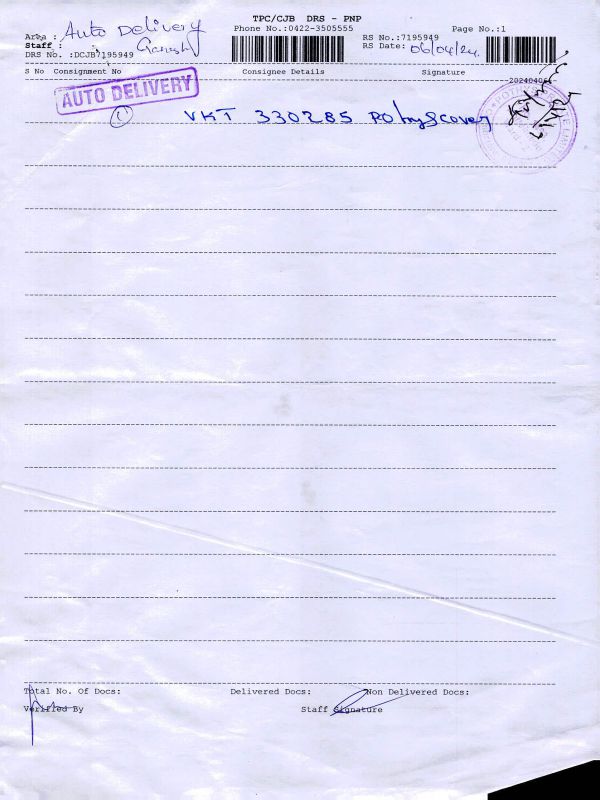 TPC/CJB DRS - PNP
Phone No.:0422-3505555
Page No.:1
Area : Auto Delivery
Staff : Ganesh
RS No.:7195949
RS Date: 06/04/24
DRS No. :DCJB7195949
S No Consignment No Consignee Details Signature
20240406
AUTO DELIVERY
1 VKT 330285
Total No. Of Docs: Delivered Docs: Non Delivered Docs:
Verified By Staff Signature